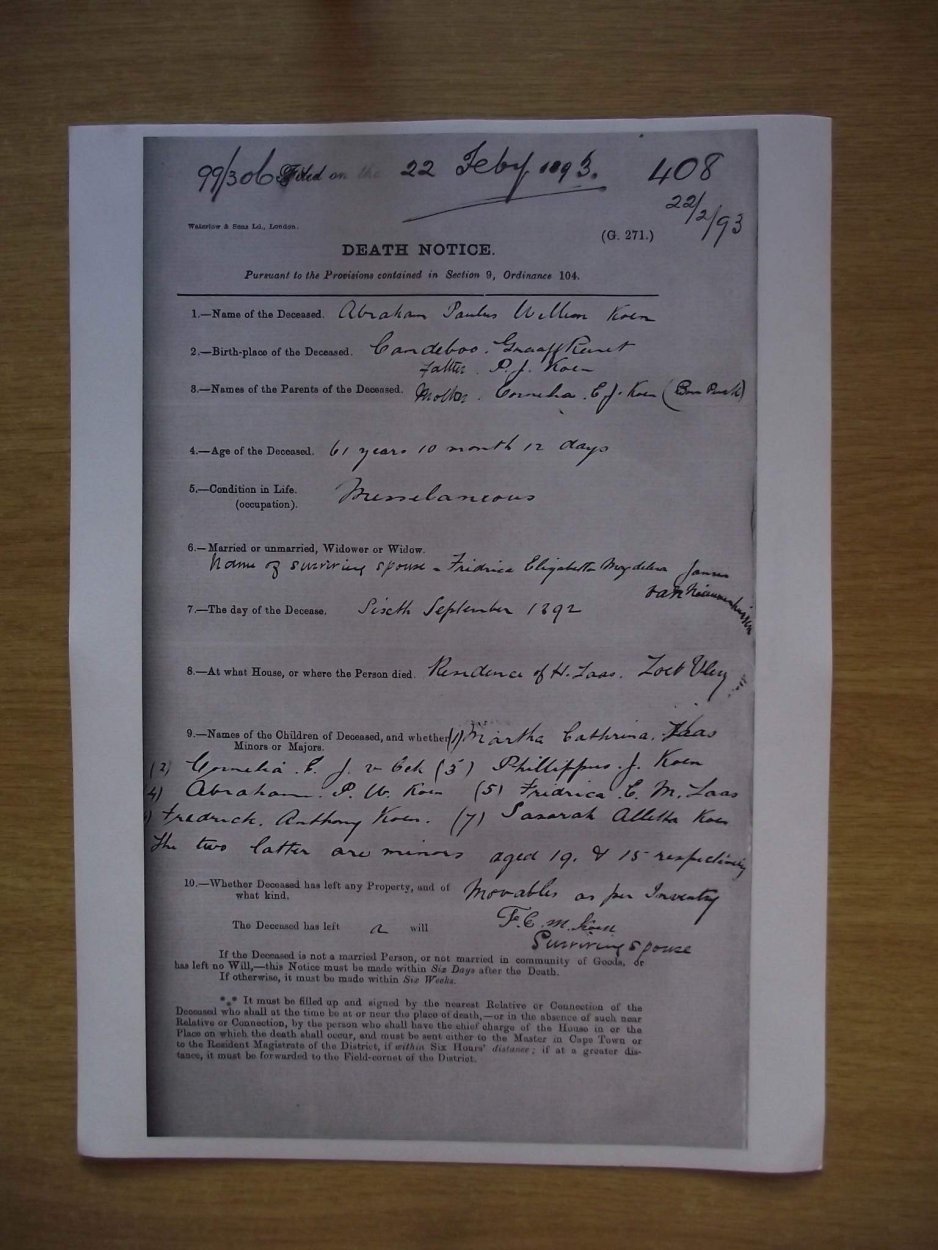 99/306 Filed on the 22 Feby 1893. 408
22/2/93
Waterlow & Sons Ld., London.
(G. 271.)
DEATH NOTICE.
Pursuant to the Provisions contained in Section 9, Ordinance 104.
1.—Name of the Deceased. Abraham Paulus William Koen
2.—Birth-place of the Deceased. Candeboo. Graaff Reinet
father. P. J. Koen
3.—Names of the Parents of the Deceased. Mother. Cornelia. E. J. Koen
4.—Age of the Deceased. 61 years 10 month 12 days
5.—Condition in Life. Misselaneous
(occupation).
6.—Married or unmarried, Widower or Widow.
Name of surviving spouse - Fridrica Elizabetta Magdelena Jansen
van
7.—The day of the Decease. Sixth September 1892
8.—At what House, or where the Person died. Residence of H. Laas. Zoet Vley
9.—Names of the Children of Deceased, and whether (1) Martha Cathrina. Haas
Minors or Majors.
(2) Cornelia. E. J. v Eck (3) Phillippus. J. Koen
4) Abraham. P. W. Koen (5) Fridrica. E. M. Laas
) Fredrick. Anthony Koen. (7) Sasarah Alletta Koen
The two latter are minors aged 19. & 15 respectively
10.—Whether Deceased has left any Property, and of Movables as per Inventry
what kind.
The Deceased has left a will F. E. M. Koen
Surviving spouse
If the Deceased is not a married Person, or not married in community of Goods, or
has left no Will,—this Notice must be made within Six Days after the Death.
If otherwise, it must be made within Six Weeks.
*⁎* It must be filled up and signed by the nearest Relative or Connection of the
Deceased who shall at the time be at or near the place of death,—or in the absence of such near
Relative or Connection, by the person who shall have the chief charge of the House in or the
Place on which the death shall occur, and must be sent either to the Master in Cape Town or
to the Resident Magistrate of the District, if within Six Hours' distance; if at a greater dis-
tance, it must be forwarded to the Field-cornet of the District.